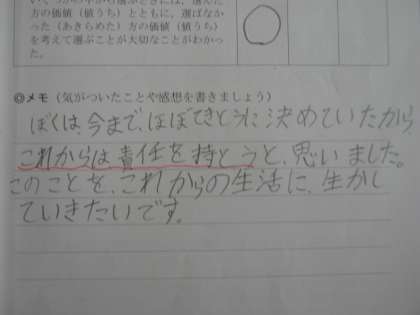 方の価値（値うち）とともに，選ばなか
った（あきらめた）方の価値（値うち）
を考えて選ぶことが大切なことがわかっ
た。
◎メモ（気がついたことや感想を書きましょう）
ぼくは、今まで、ほぼてきとうに決めていたから
これからは、責任を持とうと、思いました。
このことを、これからの生活に、生かし
ていきたいです。